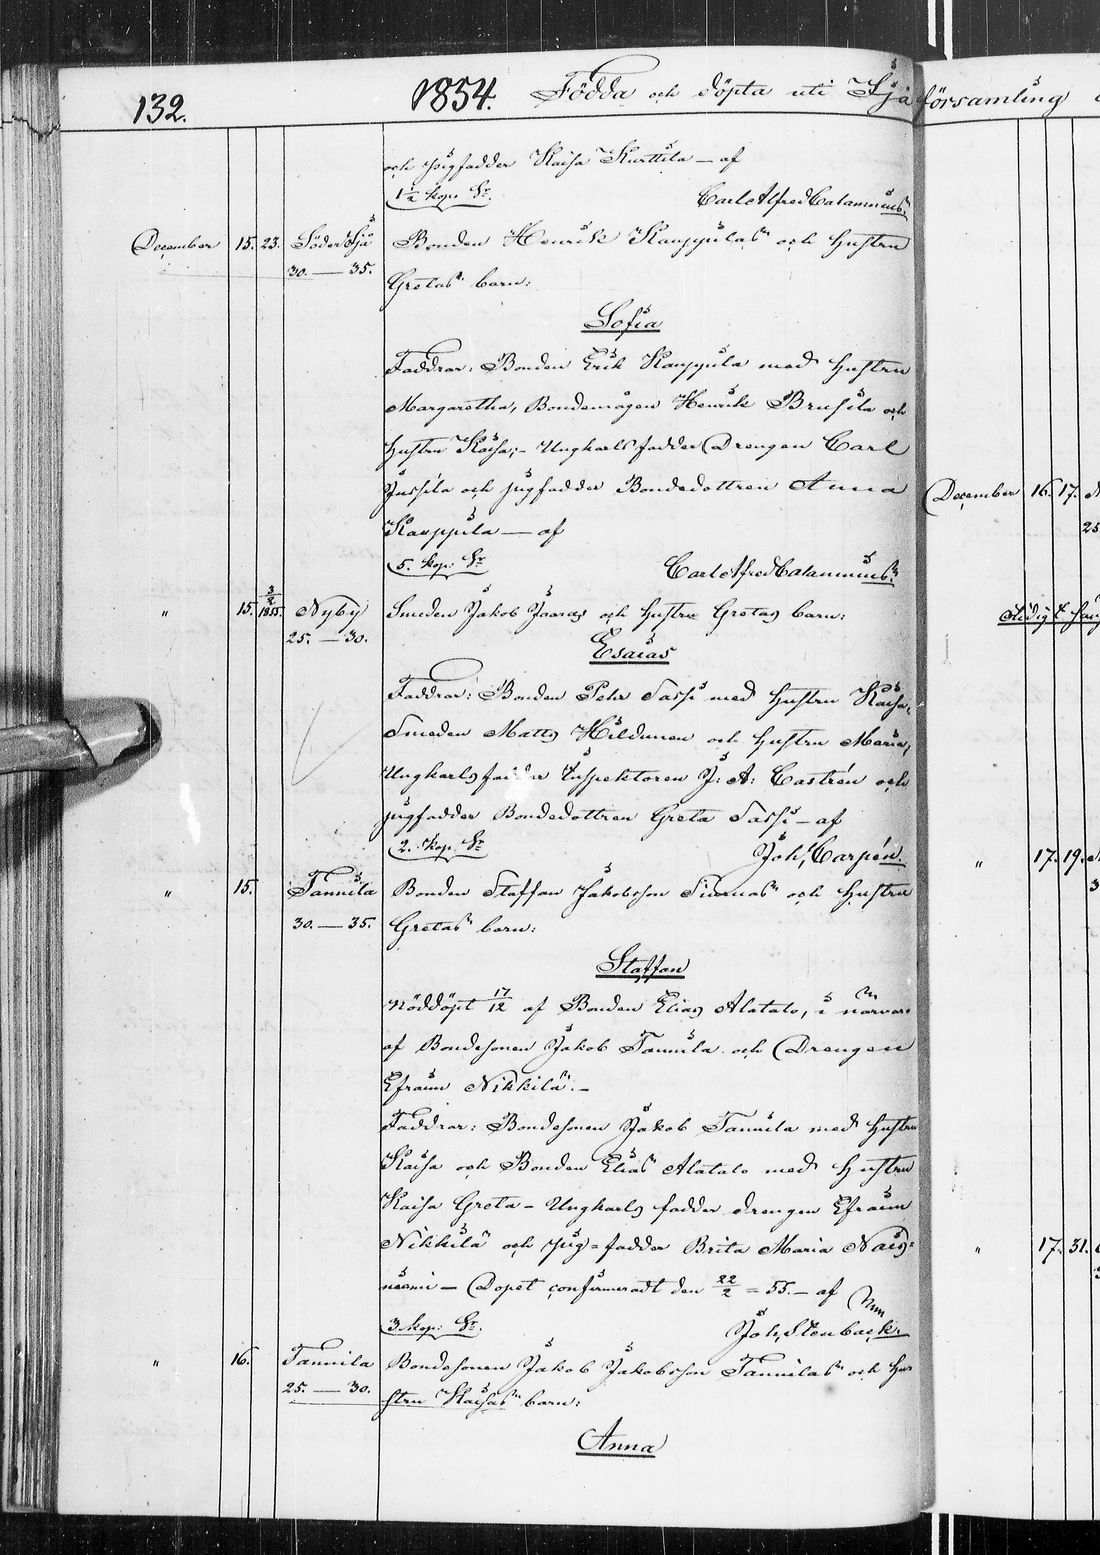 132. 1854. Födda och döpta uti Ijå församling
och pigfadder Kaisa Kurttila — af
1½ kop. Sr. Carl Alfred Calamnius.
December 15. 23. Söder Ijå Bonden Henrik Kauppilas och hustru
30. — 35. Gretas barn:
Sofia
Faddrar: Bonden Erik Kauppila med hustru
Margaretha, Bondemågen Henrik Brusila och
hustru Kaisa; – Ungkarlsfadder Drengen Carl
Jussila och pigfadder Bondedottren Anna
Kauppila — af
5. kop. Sr. Carl Alfred Calamnius.
" 15. 3/2 1855. Nyby Smeden Jakob Jaaras och hustru Gretas barn:
25. — 30.
Esaias
Faddrar: Bonden Pehr Sassi med hustru Kaisa,
Smeden Matts Hildunen och hustru Maria,
Ungkarlsfadder Inspektoren J: A: Castrén och
pigfadder Bondedottren Greta Sassi – af
2. kop. Sr. Joh. Carpén.
" 15. Tannila Bonden Staffan Jakobsson och hustru
30. — 35. Gretas barn:
Staffan
Nöddöpt 17/12 af Bonden Elias Alatalo, i närvaro
af Bondesonen Jakob Tannila och Drengen
Efraim Nikkilä. –
Faddrar: Bondesonen Jakob Tannila med hustru
Kaisa och Bonden Elias Alatalo med hustru
Kaisa Greta – Ungkarls fadder drengen Efraim
Nikkilä och pig=fadder Brita Maria
– Dopet confirmeradt den 22/2 = 55. – af
3 kop: Sr. Joh. Stenbäck.
" 16. Tannila Bondesonen Jakob Jakobsson Tannilas och hu-
25. — 30. stru Kaisas barn:
Anna
December 16. 17.
25
17. 19.
3
" 17. 31.